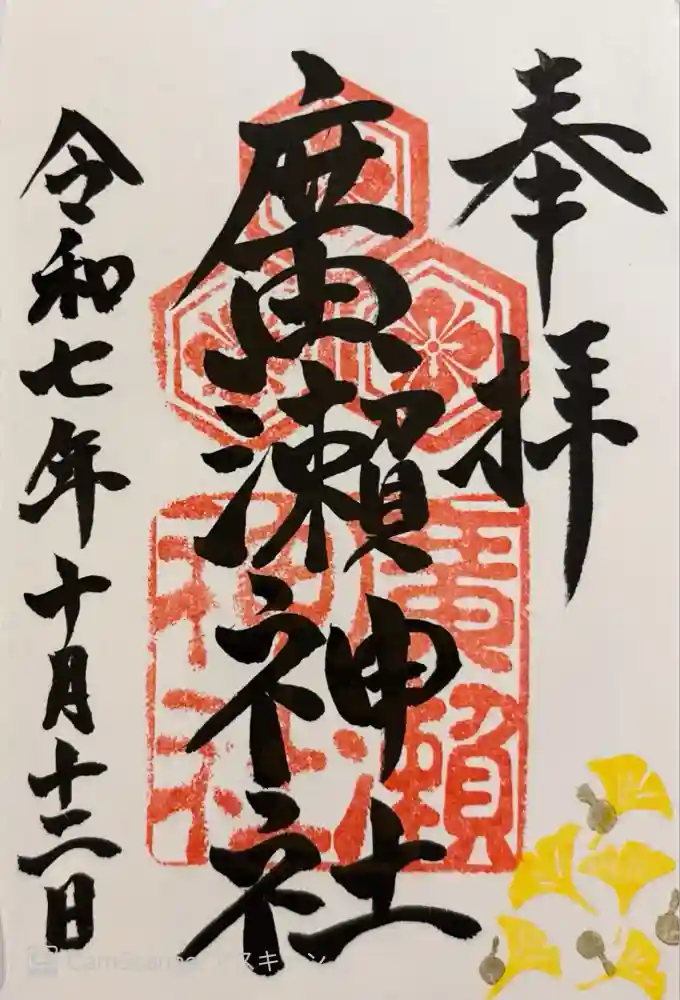 奉拝
廣瀬神社
廣瀬神社
令和七年十月十二日
CamScanner でスキャン